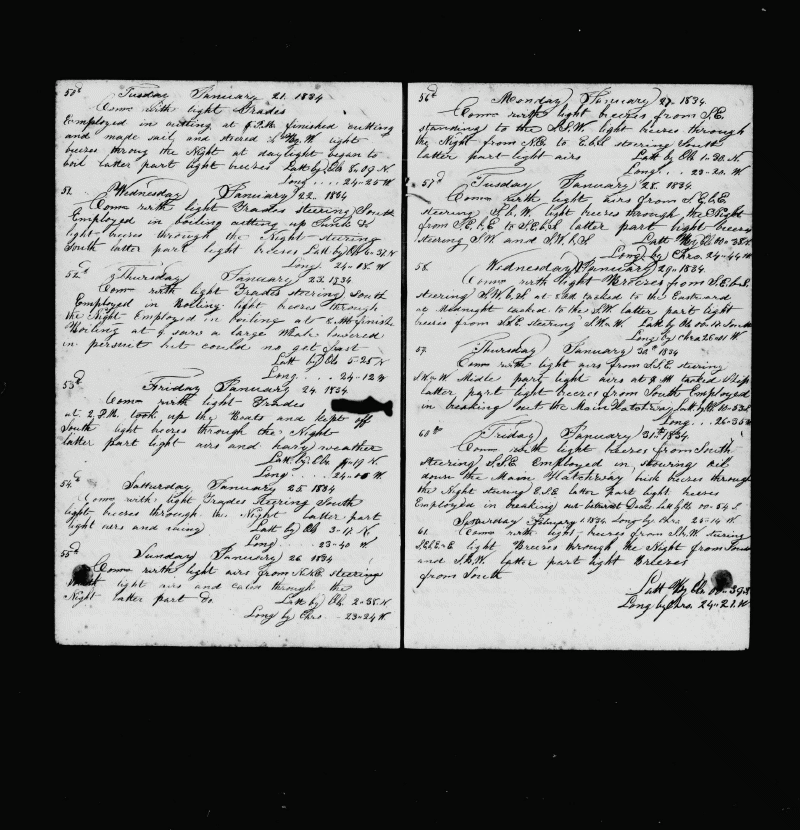 50d Tusday January 21. 1834
Comc with light Trades
Employed in cutting at 6 P.M. finished cutting
and made sail and steered S W light
breeses throug the Night at daylight began to
boil latter part light breeses Latt by Ob 8..09 N
Long .... 24-25 W
51. Wednesday January 22. 1834
Comc with light Trades steering South
Employed in boiling cutting up Junk &c
light breeses through the Night steering
South latter part light breeses Latt by Ob 6..37 N
Long 24-08 W
52d Thursday January 23. 1834
Comc with light Trades steering South
Employed in Boiling light breeses through
the Night Employed in boiling at finish
Boiling at 9 saw a large Whale lowered
in persuit but could no get fast
Latt by Ob 5-25 N
Long .... 24-12 W
53d Friday January 24. 1834
Comc with light Trades
at 2 P.M. took up the Boats and kept off
South light breeses through the Night
latter part light airs and hazy weather
Latt by Obs 4-19 N
Long .... 24-08 W
54d Satturday January 25 1834
Comc with light Trades Steering South
light breeses through the Night Latter part
light airs and Latt by Ob 3-17 N
Long .... 23-40 W
55d Sunday January 26 1834
Comc with light airs from N.N.E. steering
West light airs and calm through the
Night latter part Do Latt by Ob. 2-38 N
Long by Chro. - 23-24 W
56d Monday January 27. 1834
Comc with light breeses from S.E.
standing to the S.S.W. light breeses through
the Night from N.E to E.b.S steering South
latter part light airs Latt by Ob 1-30 N
Long .. 23-20 W
57d Tuesday January 28. 1834
Comc with light airs from S.E.b.E
steering S.b.W. light breeses through the Night
from S.E.b.E to S.E.b.S latter part light breeses
steering S.W. and S.W.b.S Latt by Ob 00-38 N
Long by Chro. 24-44 W
58. Wednesday January 29. 1834
Comc with light Breeses from S.E.b.S.
steering S.W.b.S at tacked to the Eastward
at Midnight tacked to the S.W. latter part light
breeses from S.S.E steering S.W.b.W. Latt by Ob 00-14 South
Long by Chro 25-51 W
59. Thursday January 30th 1834
Comc with light airs from S.S.E steering
S.W.b.W Middle part light airs at 9 AM tacked ship
latter part light breeses from South Employed
in breaking out the Main Hatchway Latt by Ob 00-53 S
Long .. 26-35 W
60d Friday January 31st 1834
Comc with light breeses from South
Steering S.S.E Employed in stowing oil
down the Main Hatchway brisk breeses through
the Night steering E.S.E latter part light breeses
Employed in breaking out Latt by Ob 00-54 S
Satturday February 1 1834 Long by Chro. 25-14 W
61. Comc with light breeses from S.b.W. stering
S.E.b.E light Breeses through the Night from South
and S.b.W. latter part light Breeses
from South
Latt by Ob 00-39 S
Long by Chro. 24-21 W